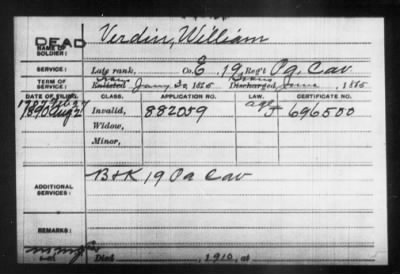 DEAD
NAME OF SOLDIER: Verdin, William
SERVICE: Late rank, Co. E, 19 Reg't Pa. Cav
TERM OF SERVICE: Enlisted Jany 30, 1865 Discharged June, 1865
DATE OF FILING. CLASS. APPLICATION NO. LAW. CERTIFICATE NO.
1890 Aug 2 Invalid, 882059 696500
Widow,
Minor,
ADDITIONAL SERVICES: B+K 19 Pa Cav
REMARKS:
Died , 1910, at